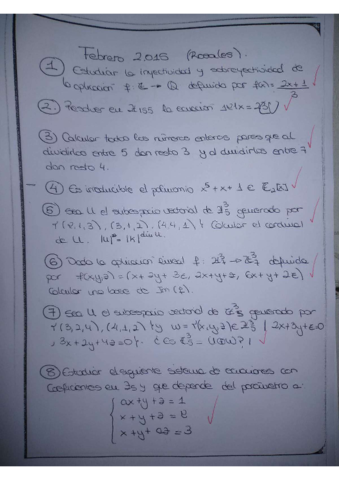 Febrero 2.015 (Rosales).
① Estudiar la inyectividad y sobreyectividad de
la aplicación f: → Q definida por f(n) = 2x+1/3
② Resolver en Z155 la ecuación
③ Calcular todos los números enteros pares que al
dividirlos entre 5 dan resto 3 y al dividirlos entre 7
dan resto 4.
④ Es irreducible el polinomio x⁵+x+1 ∈ Z₂[x]
⑤ Sea U el subespacio vectorial de Z³₅ generado por
{(2,1,3), (3,1,2), (4,4,1)} Calcular el cardinal
de U. |U| = |K|^dim U
⑥ Dada la aplicación lineal f: Z³₇ → Z³₇ definida
por f(x,y,z) = (x+2y+3z, 2x+y+z, 6x+y+2z)
Calcular una base de Im(f).
⑦ Sea U el subespacio vectorial de Z³₅ generado por
{(3,2,4), (4,1,2)} y W = {(x,y,z) ∈ Z³₅ | 2x+3y+z=0
, 3x+2y+4z=0}. ¿Es Z³₅ = U⊕W?
⑧ Estudiar el siguiente sistema de ecuaciones con
coeficientes en Z₅ y que depende del parámetro a:
ax+y+z = 1
x+y+z = 2
x+y+az = 3